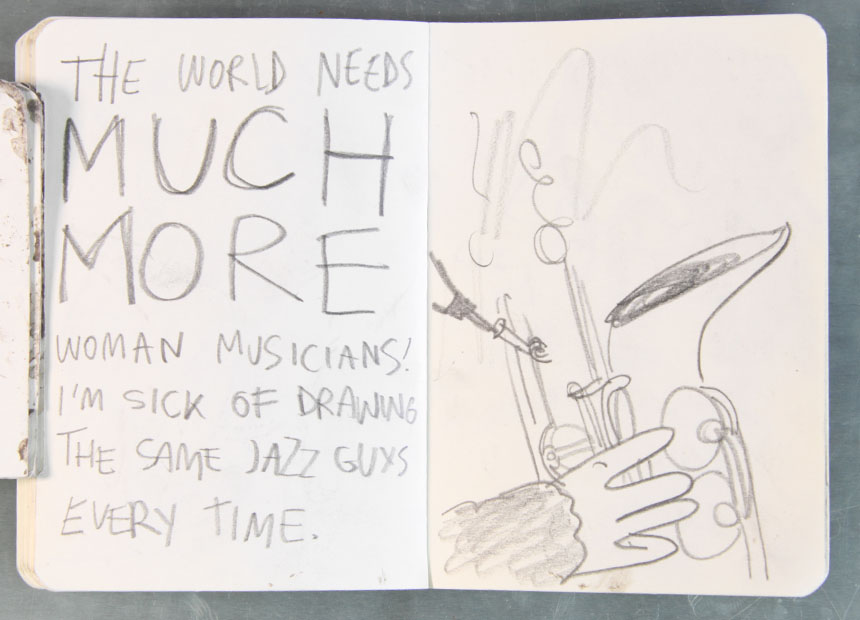 THE WORLD NEEDS
MUCH
MORE
WOMAN MUSICIANS!
I'M SICK OF DRAWING
THE SAME JAZZ GUYS
EVERY TIME.